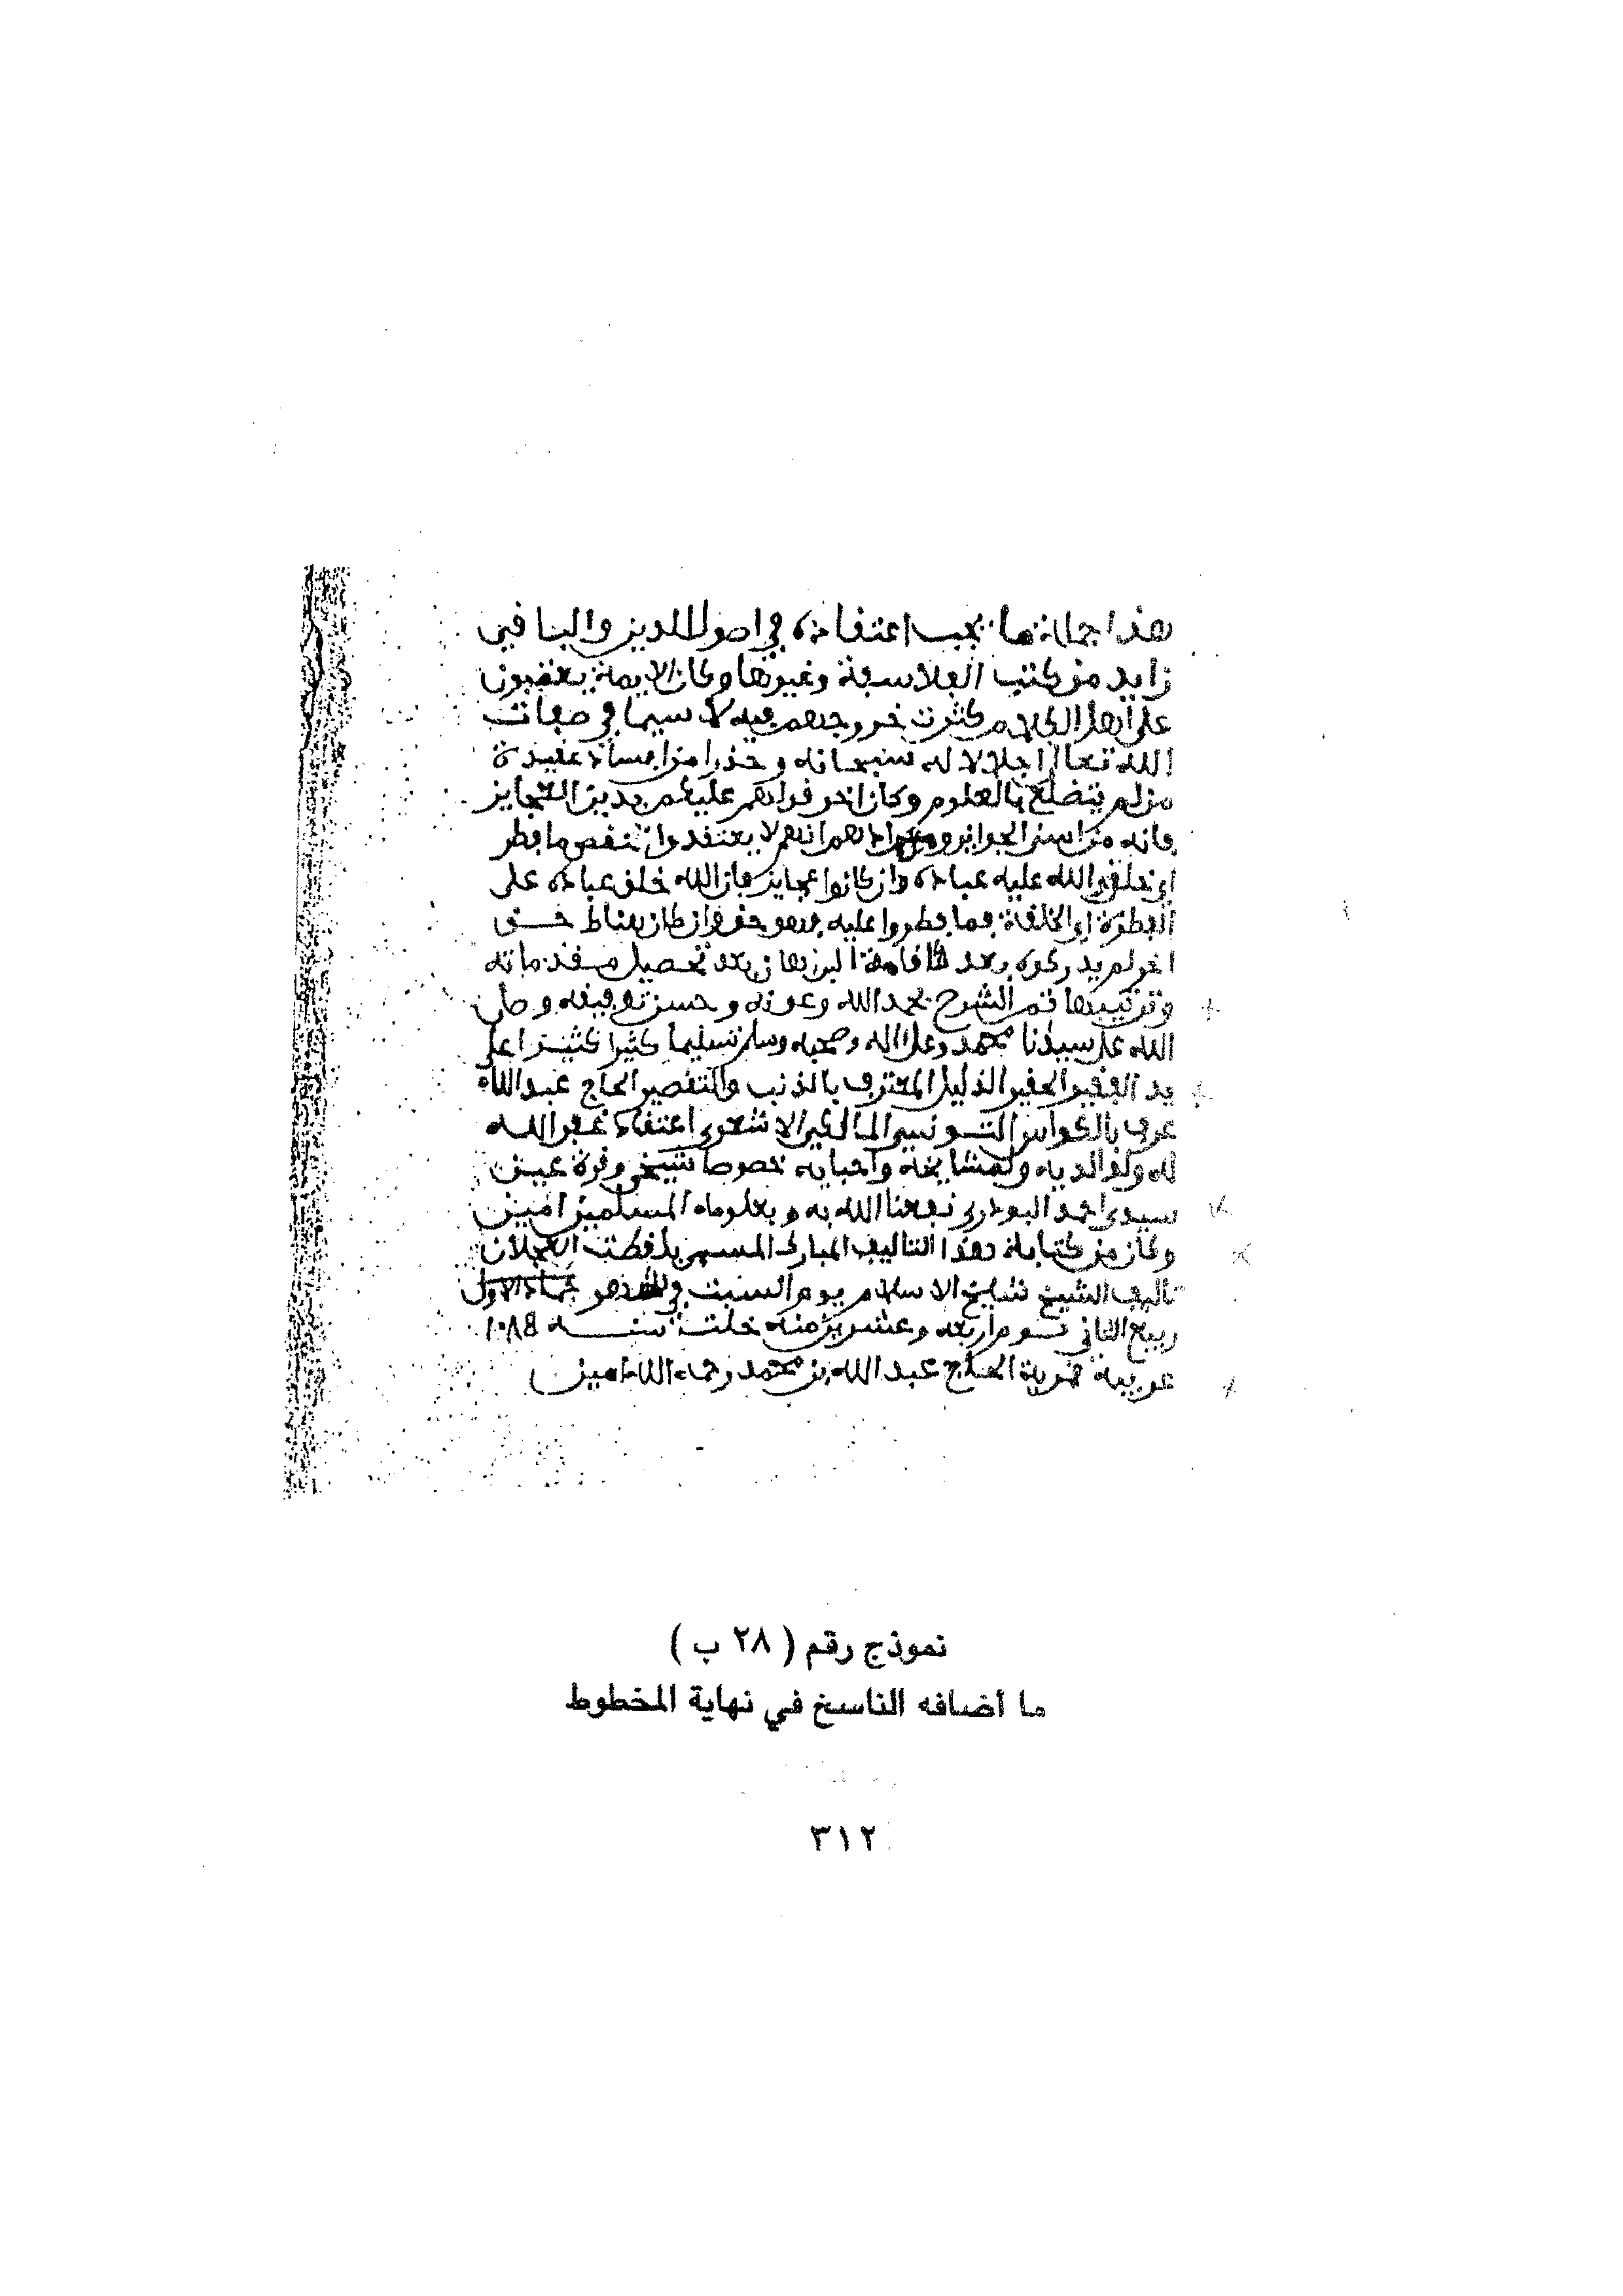 هذا جملة ما يجب اعتقاده في اصول الدين والباقي
زايد من كتب الفلاسفة وغيرها وكان الايمة يغضبون
على اهل الكلام كثرت خروجهم فيه لا سيما في صفات
الله تعالى اجلالا له سبحانه وحذرا من افساد عقيدة
من لم يتضلع بالعلوم وكان اخر قراتهم عليكم بدين العجايز
فانه من اسنى الجوايز انهم لا يعتقدوا نقص ما فطر
الله عليه عباده وان كانوا عجايز فان الله خلق عباده على
الفطرة اي الخلقة فما فطروا عليه فهو حق وان كان هناك حق
اخر لم يدركوه بعد اقامة البرهان بعد تحصيل مقدماته
وترتيبها تم الشرح بحمد الله وعونه وحسن توفيقه وصلى
الله على سيدنا محمد وعلى اله وصحبه وسلم تسليما كثيرا كثيرا على
يد الفقير الحقير الذليل المعترف بالذنب والتقصير الحاج عبد الله
عرف بالكواس التونسي المالكي الاشعري اعتقادا غفر الله
له ولوالديه ولمشايخه واحبايه خصوصا شيخي وقرة عيني
سيدي احمد نفعنا الله به وبعلومه المسلمين امين
وكان من كتابة هذا التاليف المبارك المسمى بلقطت العجلان
تاليف الشيخ شايخ الاسلام يوم السبت في جماد الاول
ربيع الثاني يوم اربعه وعشرين منه خلت سنة ١٠٨٨
عربية الحاج عبد الله بن محمد رحمه الله امين
نموذج رقم ( ٢٨ ب )
ما أضافه الناسخ في نهاية المخطوط
٣١٢